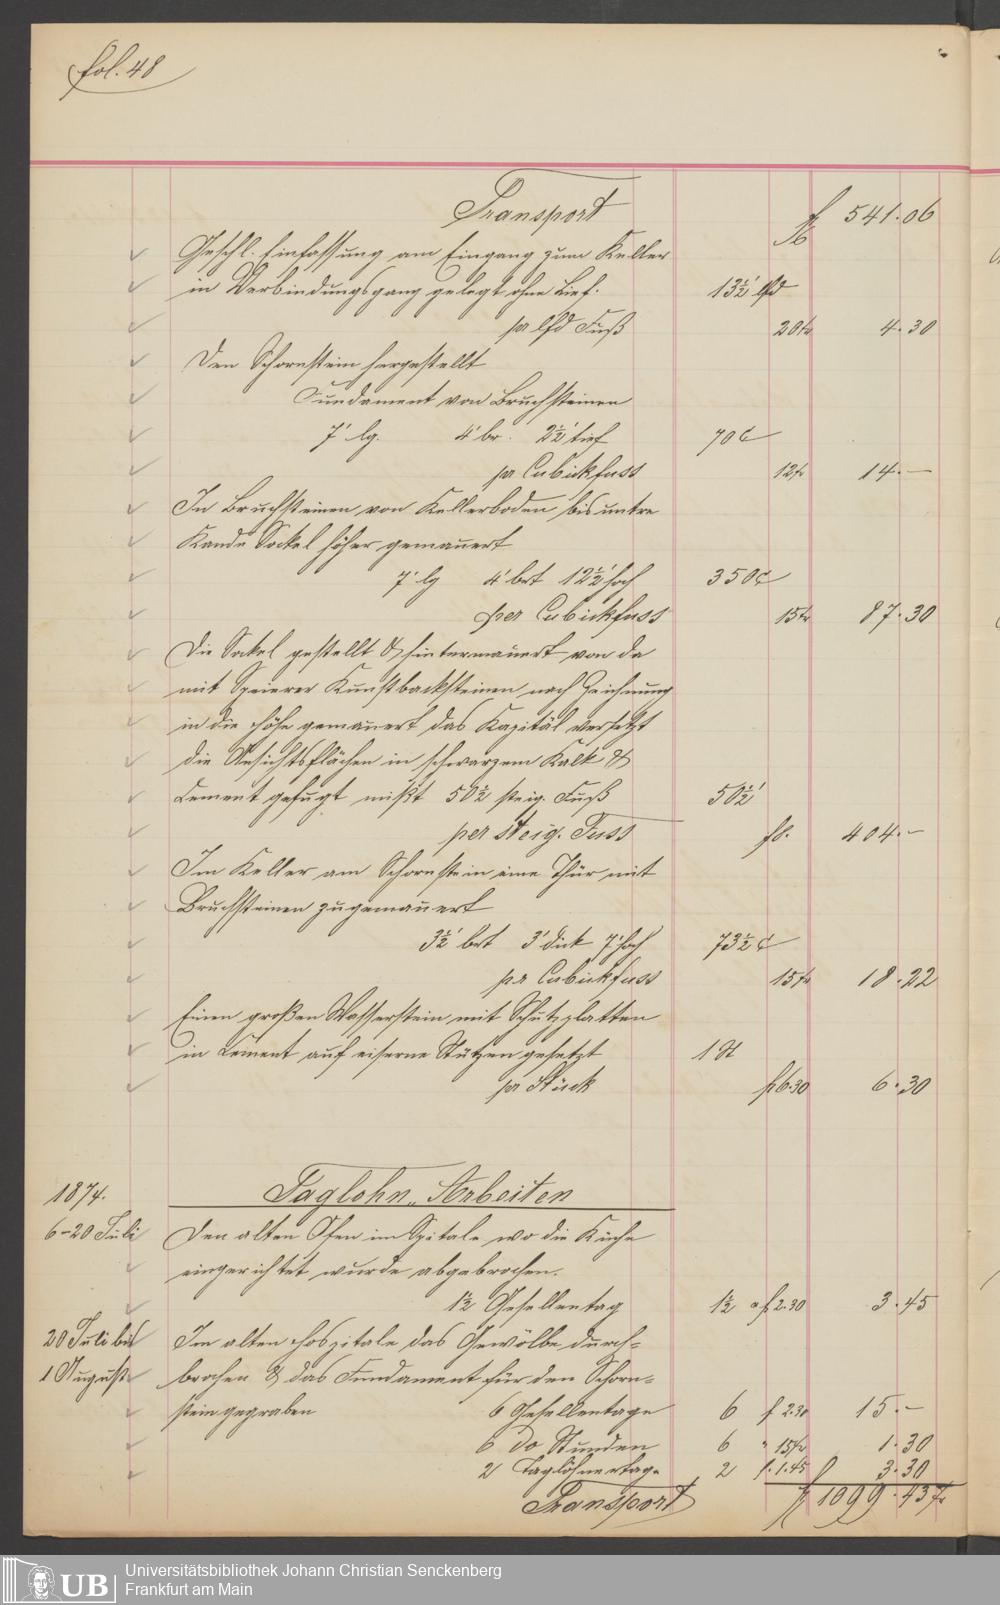 fol. 48
Transport f 541.06
Geschl. Einfassung am Eingang zum Keller
in Verbindungsgang gelegt ohne Lief. 13½' lfd
pr lfd Fuß 20 kr 4.30
Den Schornstein hergestellt
Fundament von Bruchsteinen
7' lg. 4' br. 2½' tief 70 c'
pr Cubickfuss 12 kr 14.—
In Bruchsteinen von Kellerboden bis untre
Kande Sockel höher gemauert
7' lg 4' brt 12½' hoch 350 c'
per Cubickfuss 15 kr 87.30
Die Sockel gestellt & hintermauert von da
mit Speierer Kunstbacksteinen nach Zeichnung
in die Höhe gemauert das Kapitäl versetzt
die Ansichtsflächen in schwarzem Kalk &
Cement gefugt mißt 50½ steig. Fuß 50½'
per steig. Fuss f 8. 404.—
Im Keller am Schornstein eine Thür mit
Bruchsteinen zugemauert
3½' brt 3' dick 7' hoch 73½ c'
pr Cubickfuss 15 kr 18.22
Einen großen Wasserstein mit Schutzplatten
in Cement auf eiserne Stützen gesetzt 1 St
pr Stück f 6.30 6.30
1874. Taglohn-Arbeiten
6-20 Juli Den alten Ofen im Spitale wo die Küche
eingerichtet wurde abgebrochen.
1½ Gesellentag 1½ a f 2.30 3.45
20 Juli bis Im alten Hospitale das Gewölbe durch-
1 August brochen & das Fundament für den Schorn-
stein gegraben 6 Gesellentage 6 f 2.30 15.—
6 do Stunden 6 " 15 kr 1.30
2 Taglöhnertage 2 f. 1.45 3.30
Transport f 1099.43 kr
UB
Universitätsbibliothek Johann Christian Senckenberg
Frankfurt am Main